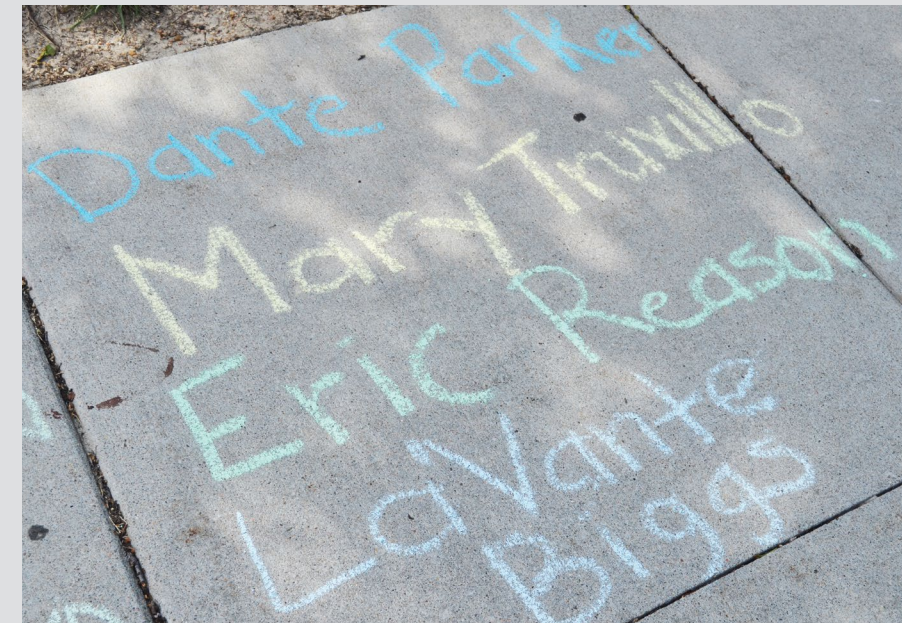 Dante Parker
Mary Truxillo
Eric Reason
LaVante
Biggs